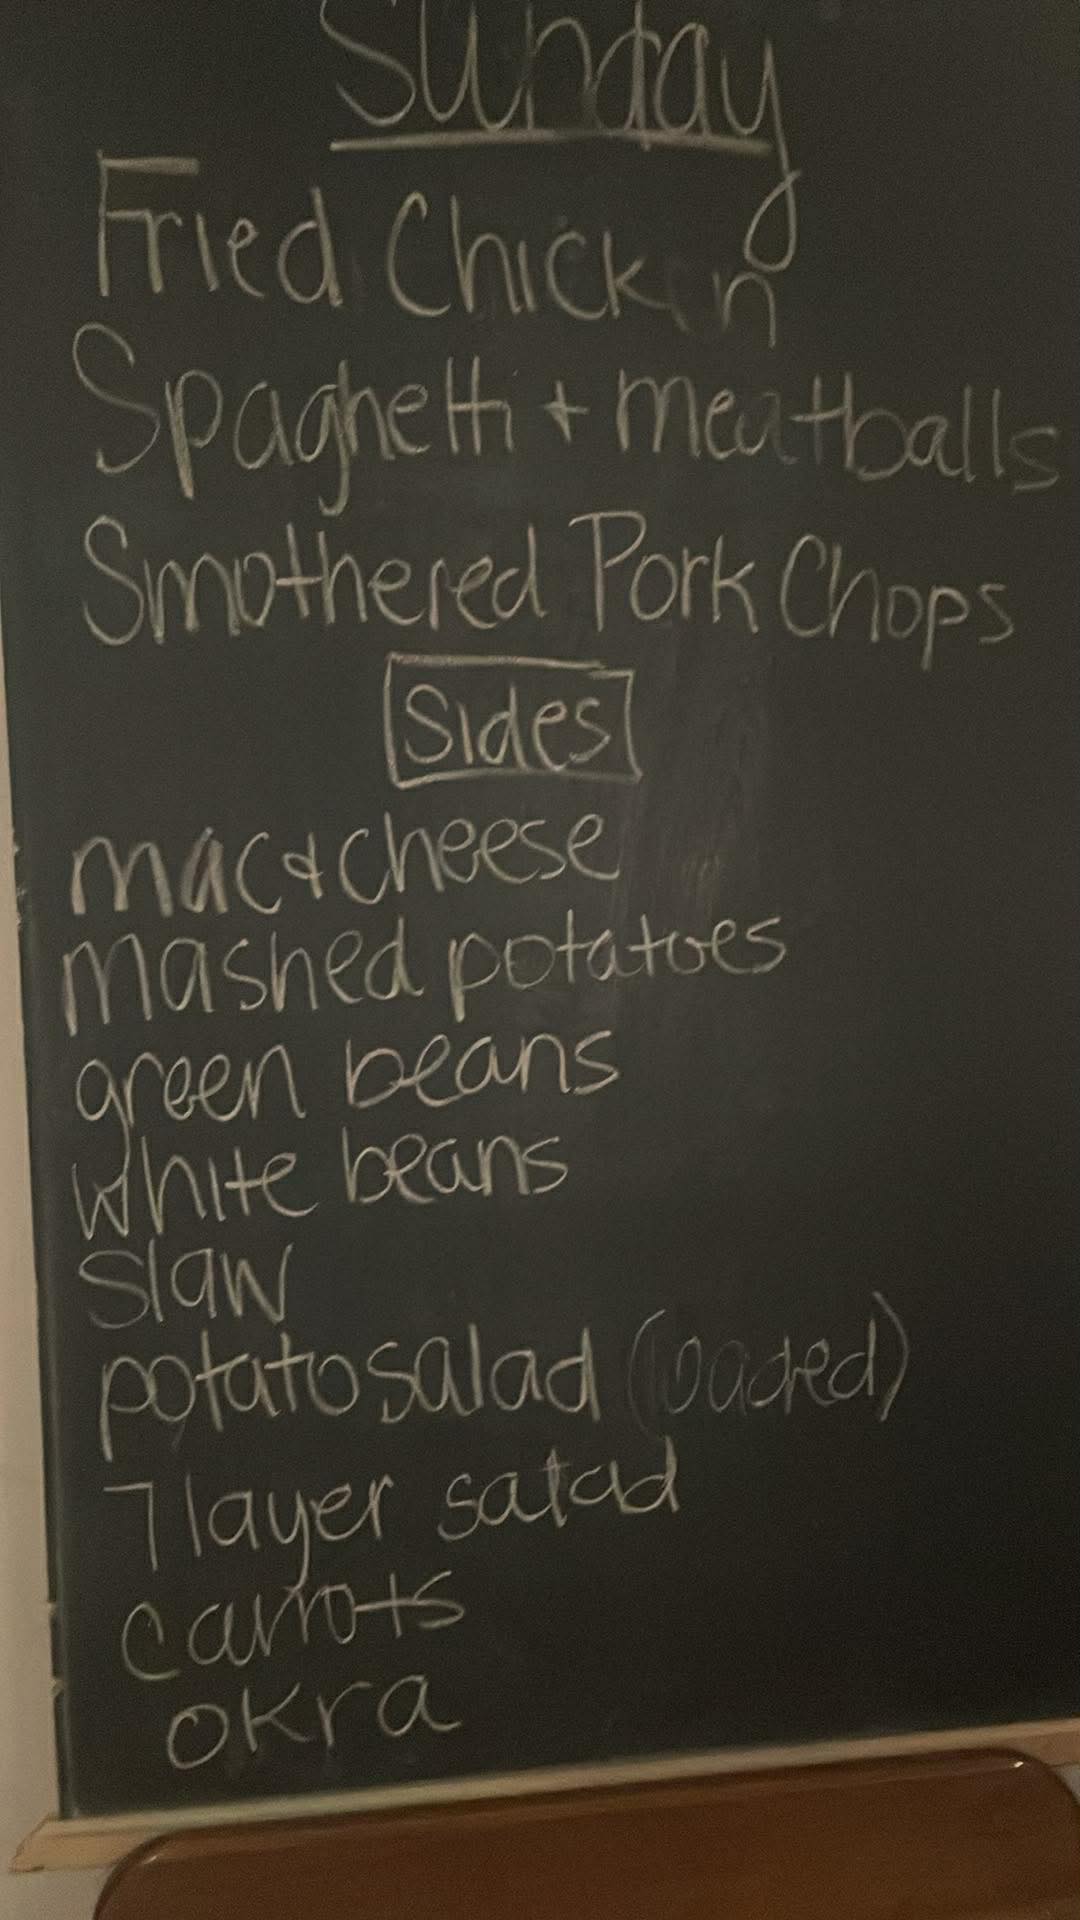 Sunday
Fried Chicken
Spaghetti + meatballs
Smothered Pork Chops
Sides
mac & cheese
mashed potatoes
green beans
white beans
slaw
potato salad (loaded)
7 layer salad
carrots
okra